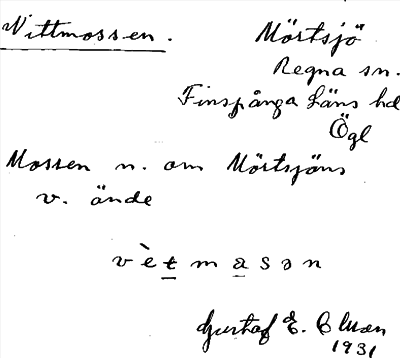 Vittmossen. Mörtsjö
Regna sn.
Finspånga Läns hd
Ögl
Mossen n. om Mörtsjöns
v. ände
vètmasən
Gustaf E. Cluen
1931